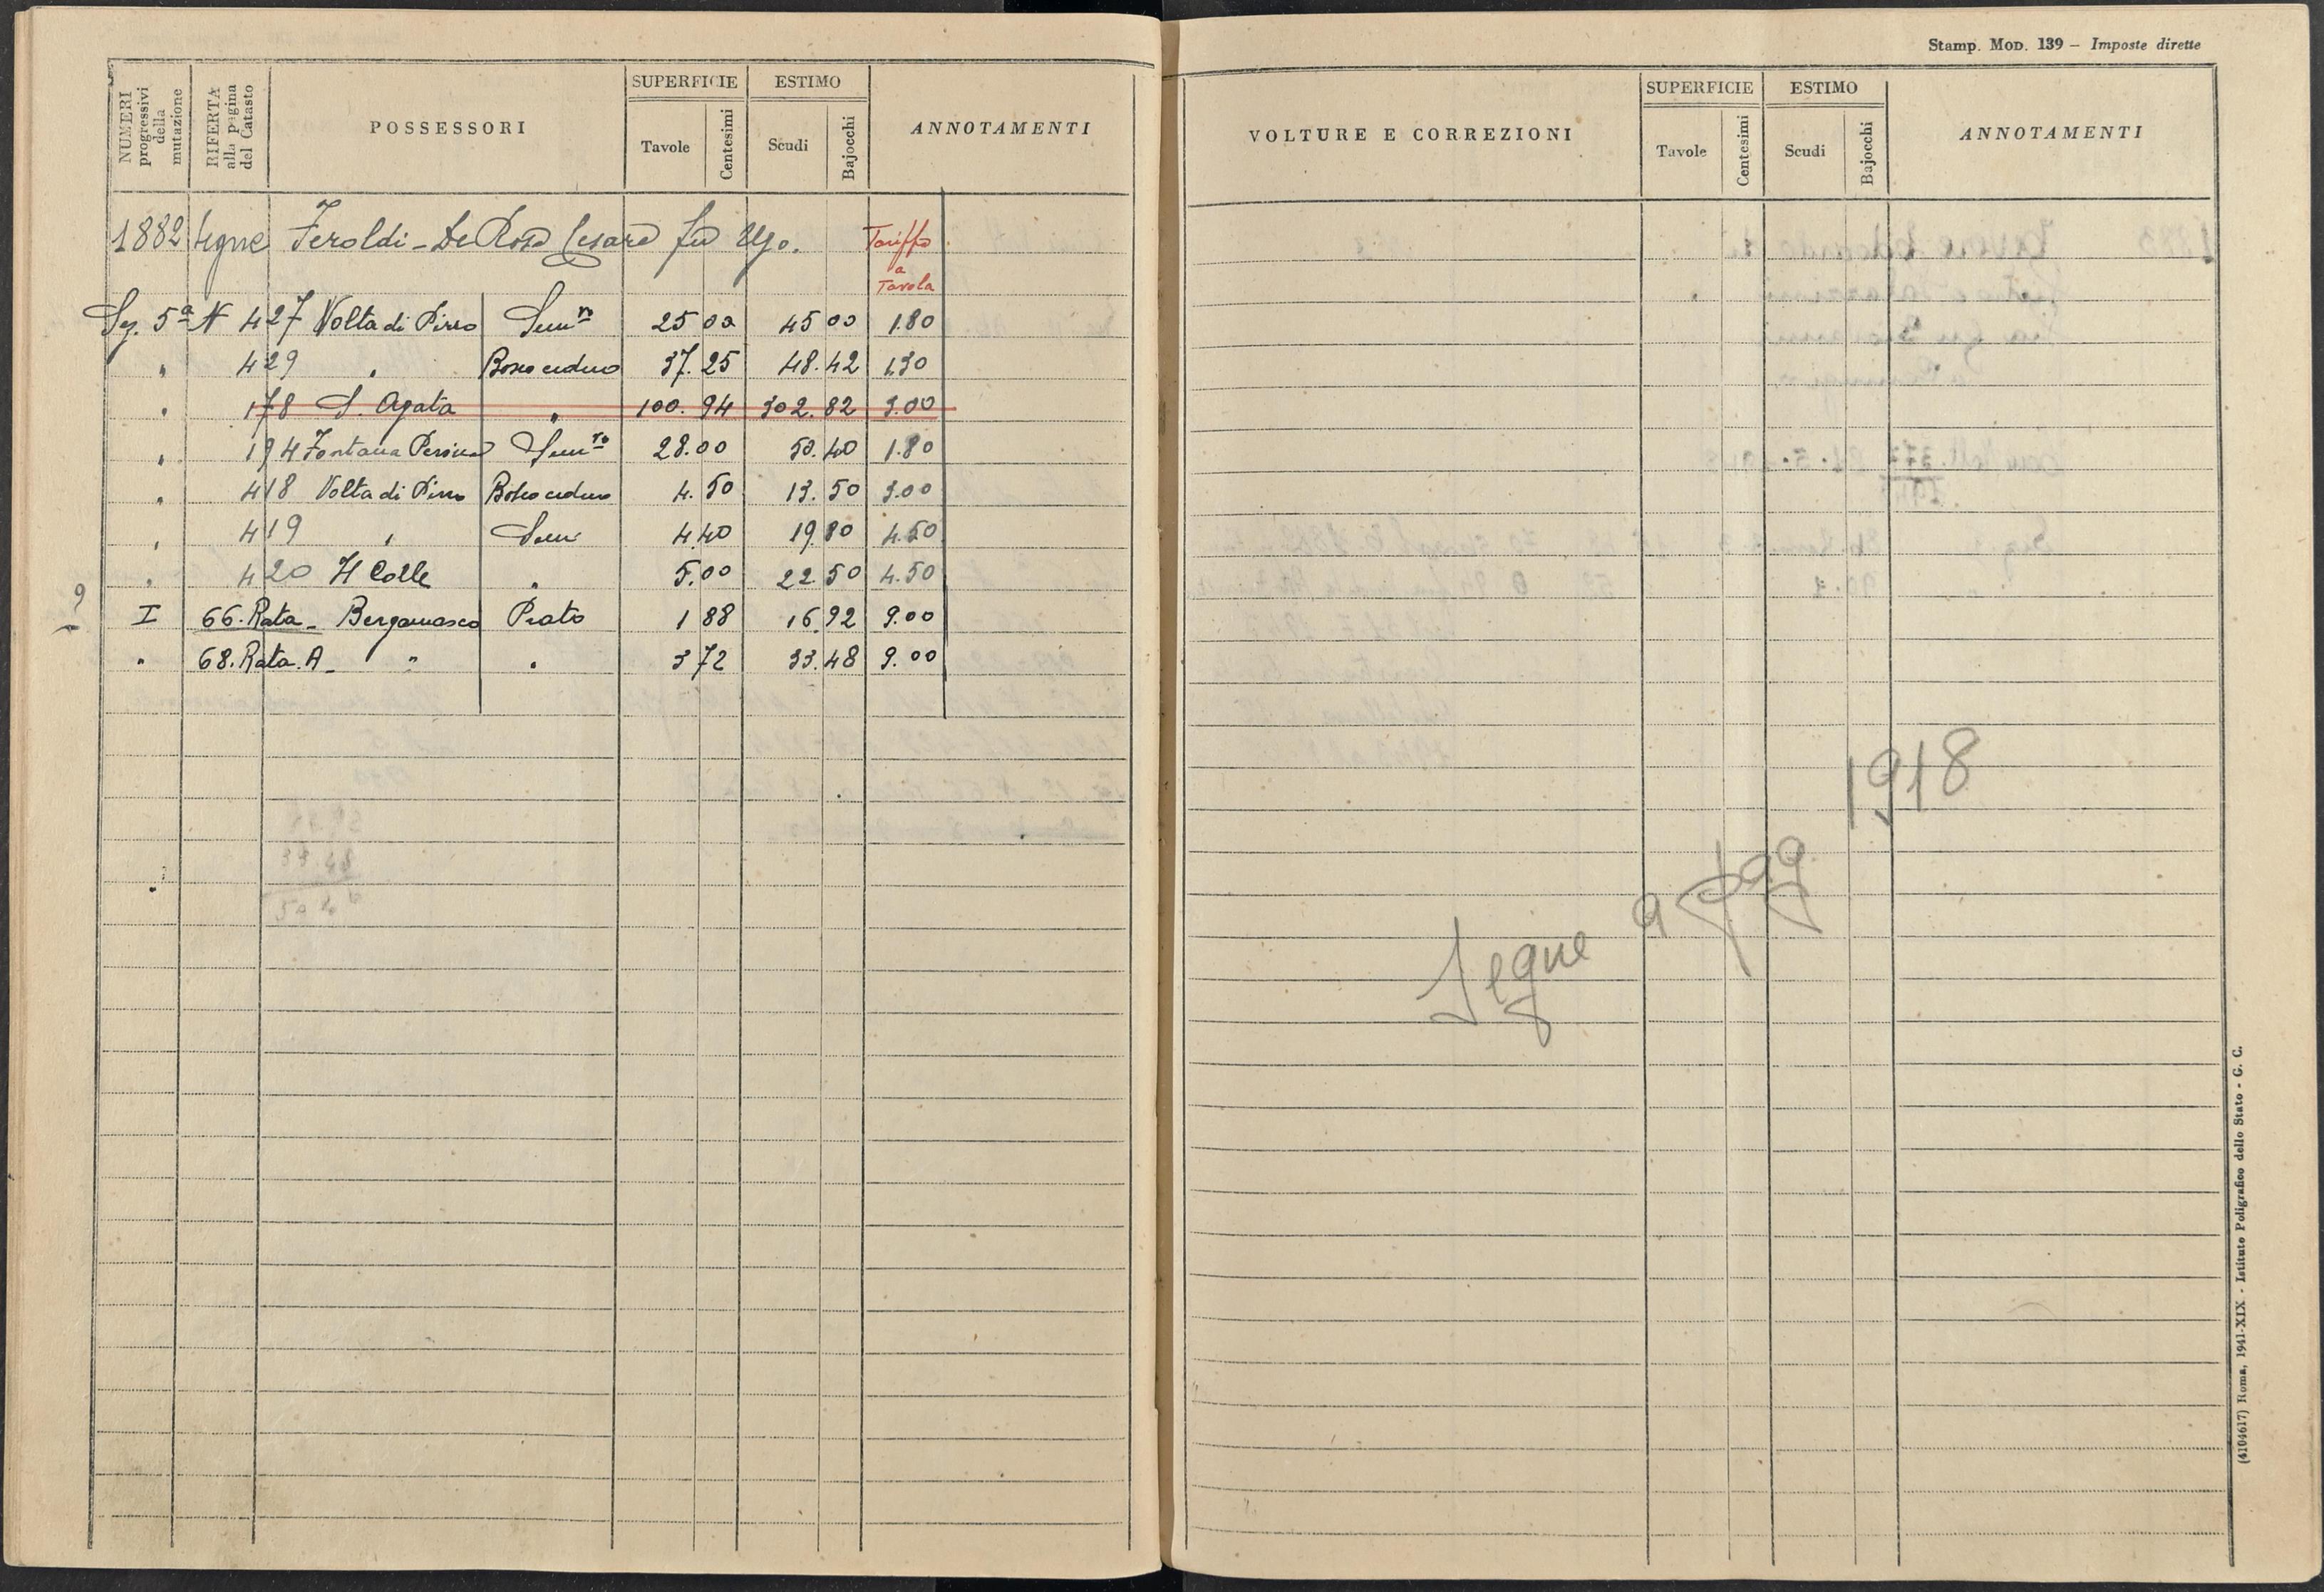 NUMERI progressivi della mutazione
RIFERTA alla pagina del Catasto
POSSESSORI
SUPERFICIE
Tavole
Centesimi
ESTIMO
Scudi
Bajocchi
ANNOTAMENTI
1882 segue Feroldi - De Rosa Cesare fu Ugo. Tariffa
a
Tavola
Sez. 5a N 427 Volta di Pirro Semro 25 00 45 00 1.80
" 429 " Bosco ceduo 37.25 48.42 1.30
" 178 S. Agata " 100.94 302.82 3.00
" 194 Fontana Semro 28.00 50.40 1.80
" 418 Volta di Pirro Bosco ceduo 4.50 13.50 3.00
" 419 " Sem 4.40 19.80 4.50
" 420 Il Colle " 5.00 22.50 4.50
9
I 66. Rata - Bergamasco Prato 1 88 16.92 9.00
" 68. Rata. A - " " 3 72 33.48 9.00
33.48
Stamp. MOD. 139 – Imposte dirette
VOLTURE E CORREZIONI
SUPERFICIE
Tavole
Centesimi
ESTIMO
Scudi
Bajocchi
ANNOTAMENTI
Segue a pag 1918
(4104617) Roma, 1941-XIX - Istituto Poligrafico dello Stato - G. C.